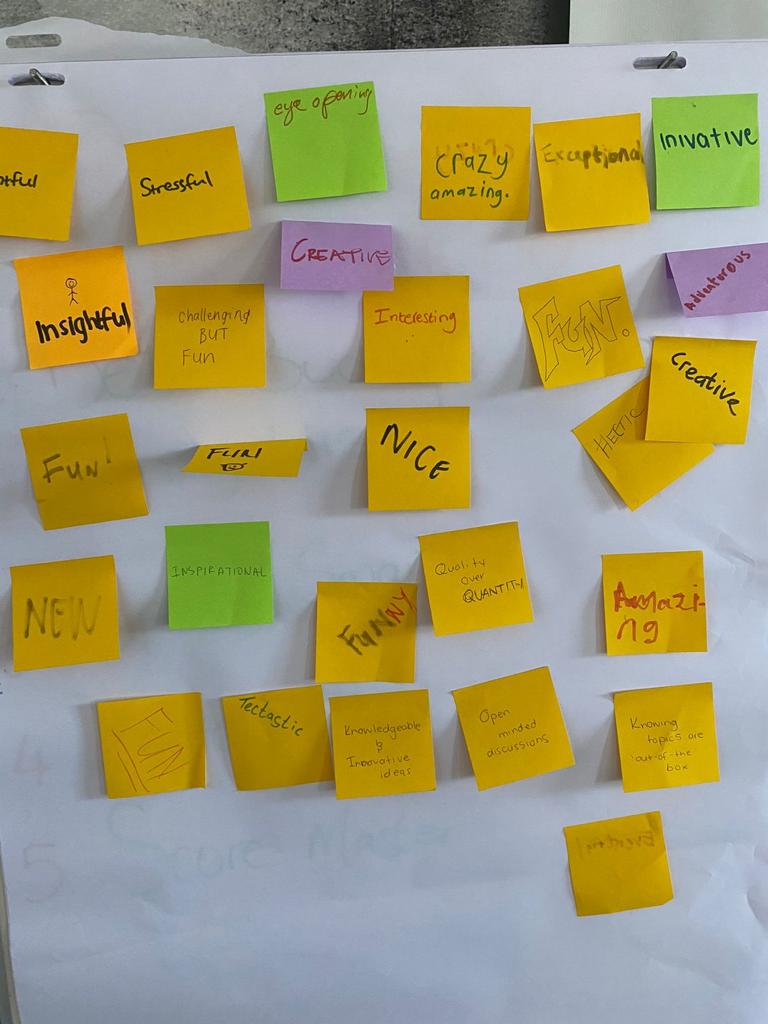 Stressful
eye opening
Crazy
amazing.
Exceptional
Inivative
CREATIVE
Adventurous
Insightful
Challenging
BUT
Fun
Interesting
FUN.
Creative
HECTIC
FUN!
FUN!
NICE
NEW
INSPIRATIONAL
FUNNY
Quality
over
QUANTITY
Amazi-
ng
FUN
Tectastic
Knowledgeable
&
Innovative
ideas
Open
minded
discussions
Knowing
topics are
'out-of-the
box
4
5